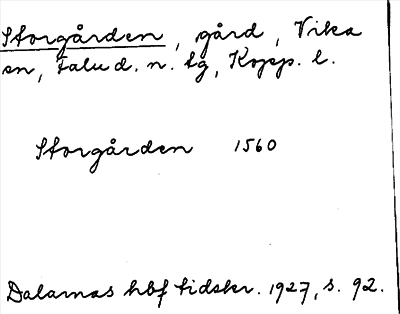 Storgården, gård, Vika
sn, Falu d. n. tg, Kopp. l.
Storgården 1560
Dalarnas hbf tidskr. 1927, s. 92.